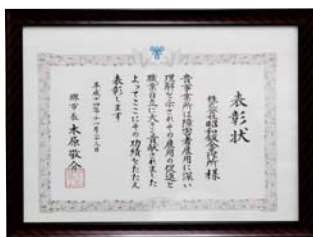 表彰状
株式会社昭和鈑金製作所様
貴事業所は障害者雇用に深い
理解を示されその雇用の促進と
職業自立に大きく貢献されました
よってここにその功績をたたえ
表彰します
平成十四年十一月二十九日
堺市長木原敬介